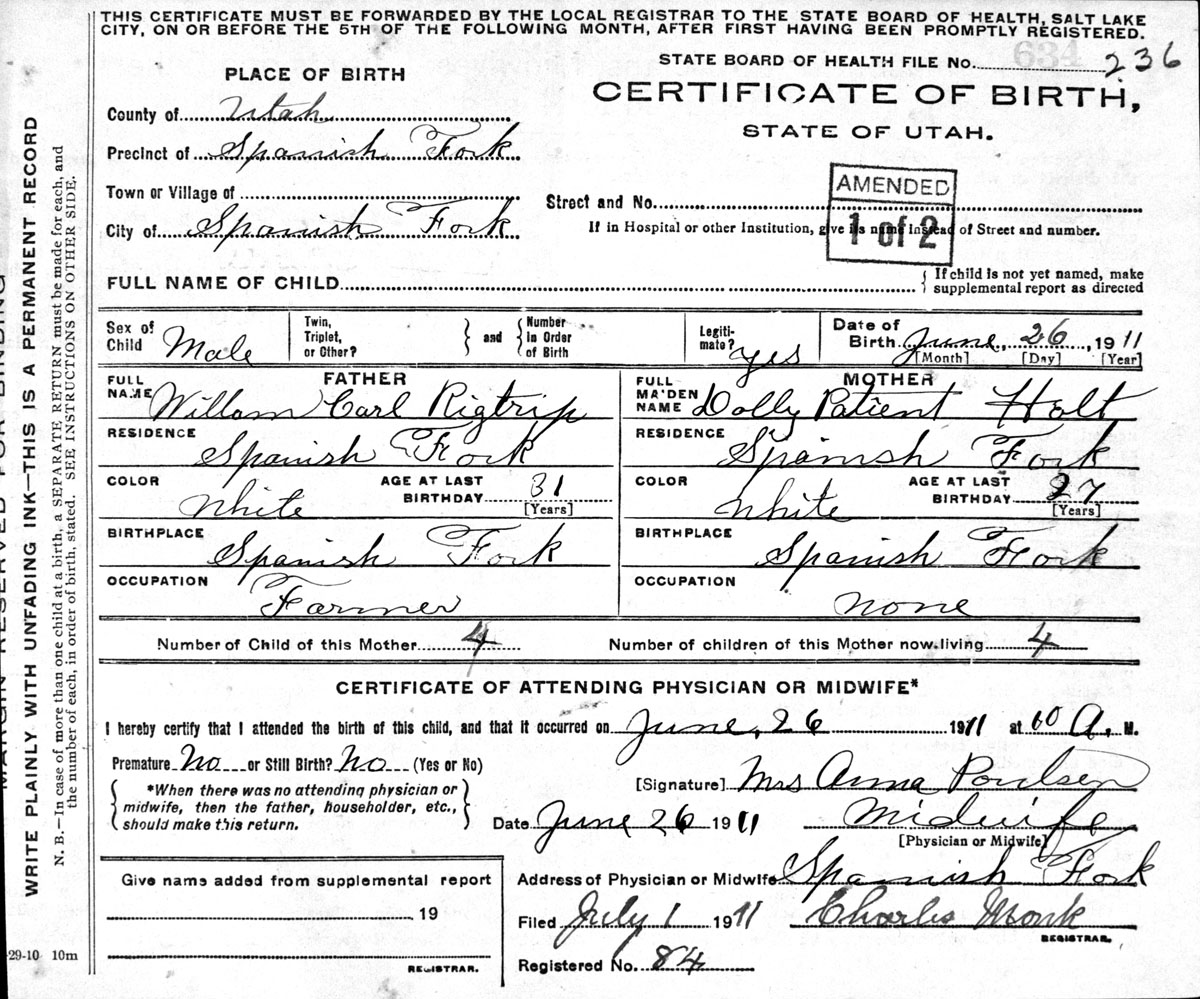 THIS CERTIFICATE MUST BE FORWARDED BY THE LOCAL REGISTRAR TO THE STATE BOARD OF HEALTH, SALT LAKE
CITY, ON OR BEFORE THE 5TH OF THE FOLLOWING MONTH, AFTER FIRST HAVING BEEN PROMPTLY REGISTERED.
634
STATE BOARD OF HEALTH FILE No. 236
PLACE OF BIRTH
CERTIFICATE OF BIRTH,
STATE OF UTAH.
County of Utah
Precinct of Spanish Fork
Town or Village of
City of Spanish Fork
AMENDED
1 of 2
Street and No.
If in Hospital or other Institution, give its name instead of Street and number.
FULL NAME OF CHILD
If child is not yet named, make
supplemental report as directed
Sex of Child Male
Twin, Triplet, or Other?
and
Number in Order of Birth
Legiti-mate? yes
Date of Birth June, 26, 1911
[Month] [Day] [Year]
FATHER
FULL NAME Willam Carl Rigtrip
RESIDENCE
Spanish Fork
COLOR White
AGE AT LAST BIRTHDAY 31
[Years]
BIRTHPLACE
Spanish Fork
OCCUPATION
Farmer
MOTHER
FULL MAIDEN NAME Dolly Patient Holt
RESIDENCE
Spanish Fork
COLOR White
AGE AT LAST BIRTHDAY 27
[Years]
BIRTHPLACE
Spanish Fork
OCCUPATION
none
Number of Child of this Mother 4
Number of children of this Mother now living 4
CERTIFICATE OF ATTENDING PHYSICIAN OR MIDWIFE*
I hereby certify that I attended the birth of this child, and that it occurred on June, 26 1911 at 10 A. M.
Premature No or Still Birth? No (Yes or No)
*When there was no attending physician or
midwife, then the father, householder, etc.,
should make this return.
[Signature] Mrs Anna Poulsen
Date June 26 1911 Midwife
[Physician or Midwife]
Address of Physician or Midwife Spanish Fork
Filed July 1 1911 Charles Monk
REGISTRAR.
Registered No. 84
Give name added from supplemental report
19
REGISTRAR.
29-10 10m
MARGIN RESERVED FOR BINDING
WRITE PLAINLY WITH UNFADING INK—THIS IS A PERMANENT RECORD
N. B.—In case of more than one child at a birth, a SEPARATE RETURN must be made for each, and
the number of each, in order of birth, stated. SEE INSTRUCTIONS ON OTHER SIDE.